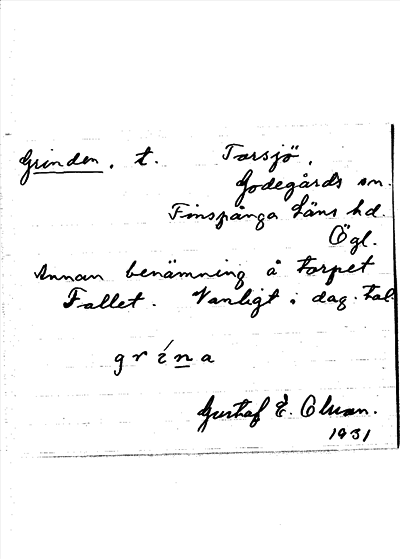 Grinden, t. Torsjö,
Godegårds sn.
Finspånga Läns hd.
Ögl.
Annan benämning å torpet
Fallet. Vanligt i dag. tal.
grína
Gustaf E. Olsson.
1931